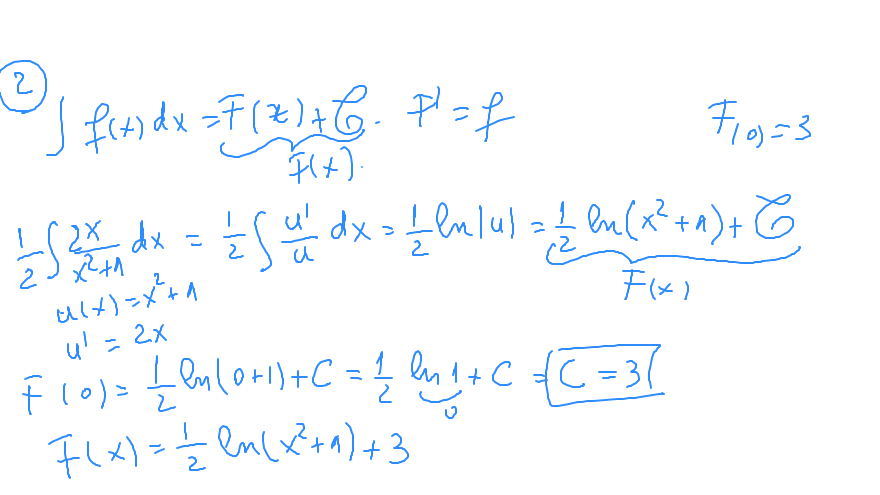 2
∫ f(x) dx = F(x) + C. F' = f F(0) = 3
F(x).
1/2 ∫ 2x/(x²+1) dx = 1/2 ∫ u'/u dx = 1/2 ln|u| = 1/2 ln(x²+1) + C
F(x)
u(x) = x²+1
u' = 2x
F(0) = 1/2 ln(0+1) + C = 1/2 ln 1 + C = C = 3
0
F(x) = 1/2 ln(x²+1) + 3